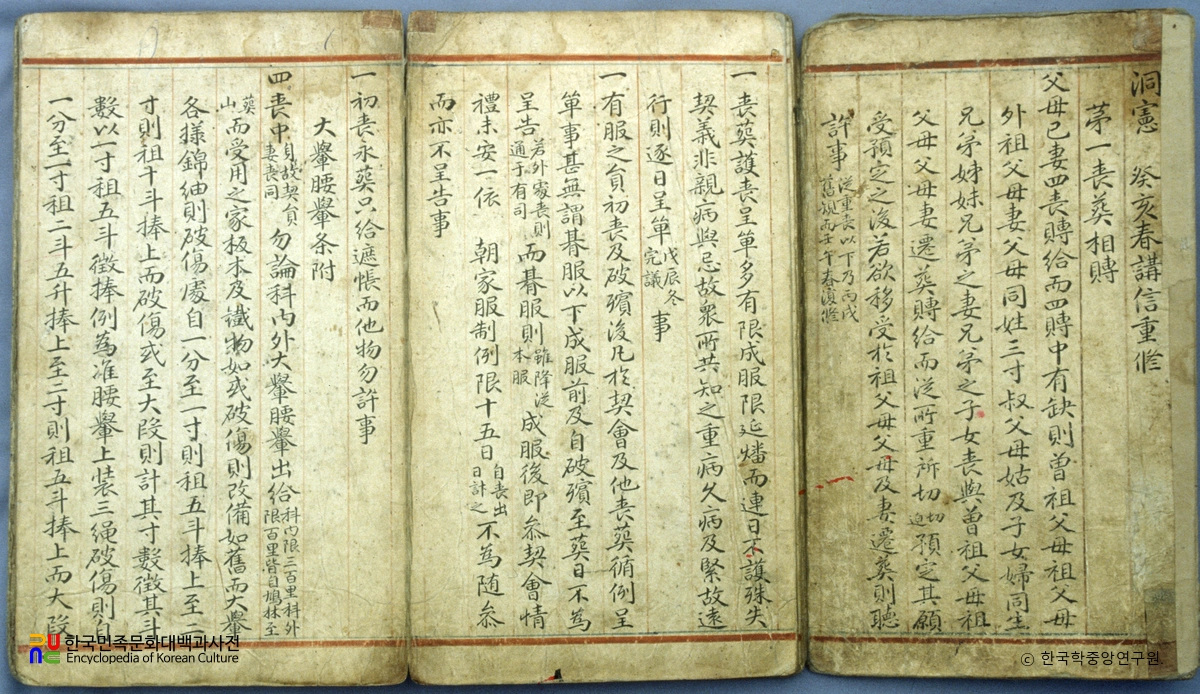 洞憲 癸亥春講信重修
苐一喪葬相賻
父母己妻四喪賻給而四賻中有缺則曾祖父母祖父母
外祖父母妻父母同姓三寸叔父母姑及子女婦同生
兄弟姊妹兄弟之妻兄弟之子女喪與曾祖父母祖
父母父母妻遷葬賻給而從所重所切切迫預定其願
受預定之後若欲移受於祖父母父母及妻遷葬則聽
許事 從重喪以下乃丙戌
舊規而壬午春復修
一喪葬護喪呈單多有限成服限延燔而連日不護殊失
契義非親病與忌故衆所共知之重病久病及緊故遠
行則逐日呈單戊辰冬
完議事
一有服之員初喪及破殯後凡於契會及他喪葬循例呈
單事甚無謂朞服以下成服前及自破殯至葬日不爲
呈告若外家喪則
通于有司而朞服則雖降從
本服成服後即叅契會情
禮未安一依 朝家服制例限十五日自喪出
日計之不爲随叅
而亦不呈告事
一初喪永葬只給遮帳而他物勿許事
大轝腰轝条附
四喪中身故契員則
妻喪同勿論科内外大轝腰轝出給科内限三百里科外
限百里皆自鳩林至
葬
山而受用之家板本及鐵物如或破傷則改備如舊而大轝
各樣錦紬則破傷處自一分至一寸則租五斗捧上至二
寸則租十斗捧上而破傷或至大段則計其寸數徴其斗
數以一寸租五斗徴捧例爲准腰轝上裝三繩破傷則自
一分至一寸租二斗五升捧上至二寸則租五斗捧上而大段
한국민족문화대백과사전
Encyclopedia of Korean Culture
© 한국학중앙연구원